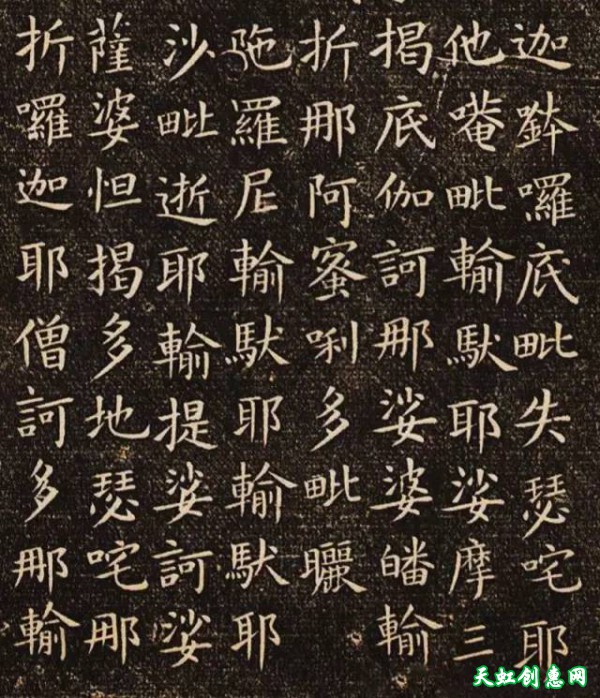 迦鉢囉底毗失瑟咤耶
他唵毗輸馱耶娑摩三
揭底伽訶那娑婆皤輸
折那阿蜜唎多毗曬
陁羅尼輸馱耶輸馱耶
沙毗逝耶輸提娑訶娑
薩婆怛揭多地瑟咤那
折囉迦耶僧訶多那輸
天虹创惠网